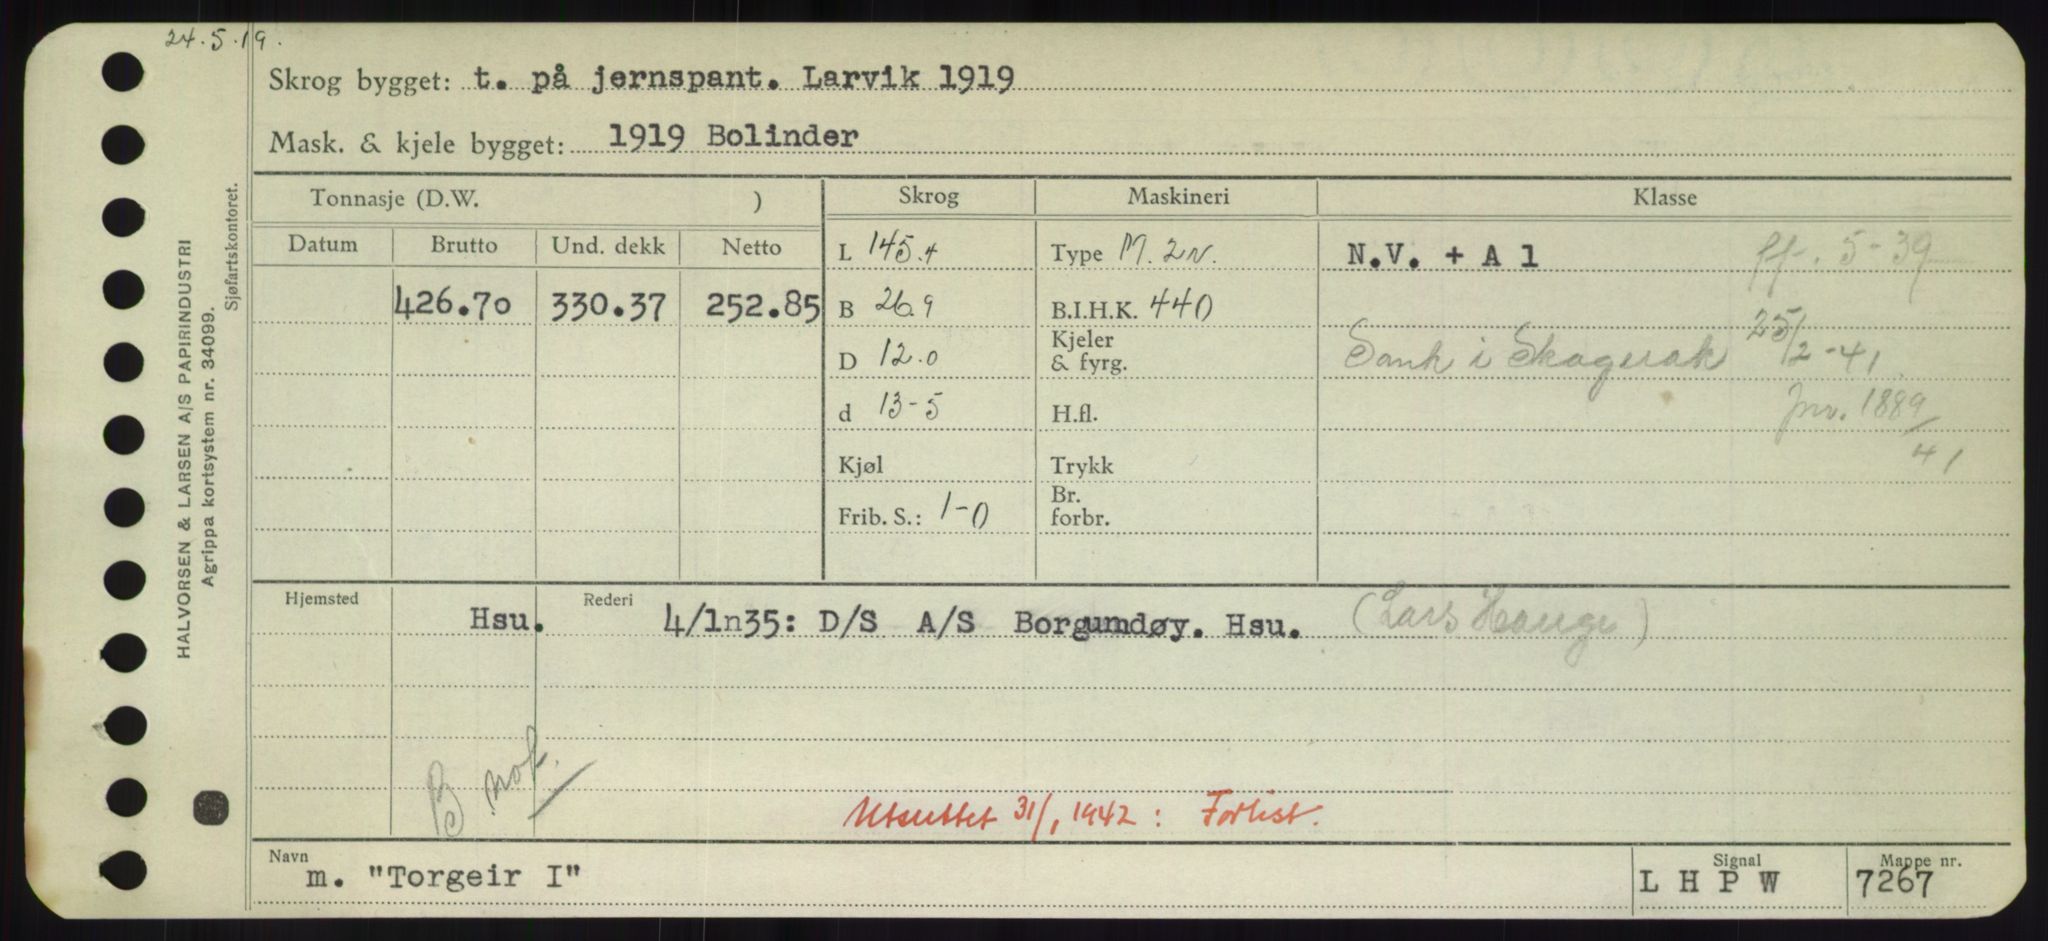 24.5.19.
Skrog bygget: t. på jernspant. Larvik 1919
Mask. & kjele bygget: 1919 Bolinder
HALVORSEN & LARSEN A/S PAPIRINDUSTRI
Agrippa kortsystem nr. 34099.
Sjøfartskontoret.
Tonnasje (D.W. ) Skrog Maskineri Klasse
Datum Brutto Und. dekk Netto L 145.4 Type M. 2N. N.V. + A 1 ff. 5-39
426.70 330.37 252.85 B 26.9 B.I.H.K. 440
D 12.0 Kjeler & fyrg. Sank i Skagerak 25/2-41.
d 13-5 H.fl. Jnv. 1889/41
Kjøl Trykk
Frib. S.: 1-0 Br. forbr.
Hjemsted Rederi
Hsu. 4/1n35: D/S A/S Borgumdøy. Hsu. (Lars Hauge)
B not.
Utsuttet 31/1 1942: Forlist.
Navn Signal Mappe nr.
m. "Torgeir I" L H P W 7267